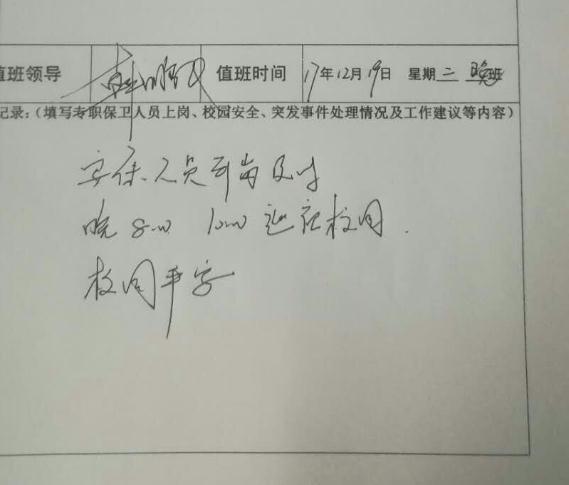 值班领导 值班时间 17年12月19日 星期二 晚班
记录：（填写专职保卫人员上岗、校园安全、突发事件处理情况及工作建议等内容）
安保人员到岗及时
晚 8:00 10:00 巡视校园.
校园平安